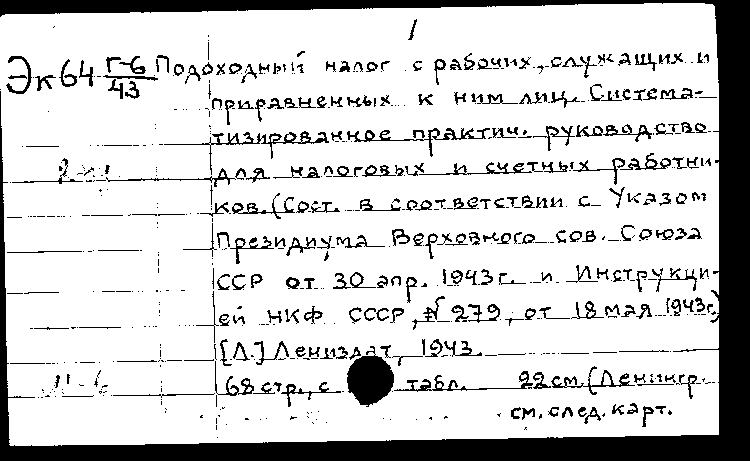 1
Эк64 Г-6/43 Подоходный налог с рабочих, служащих и
приравненных к ним лиц. Система-
тизированное практич. руководство
для налоговых и счетных работни-
ков. (Сост. в соответствии с Указом
Президиума Верховного сов. Союза
ССР от 30 апр. 1943 г. и Инструкци-
ей НКФ СССР, № 279, от 18 мая 1943г.)
[Л.] Лениздат, 1943.
68 стр., с табл. 22 см. (Ленингр.
см. след. карт.